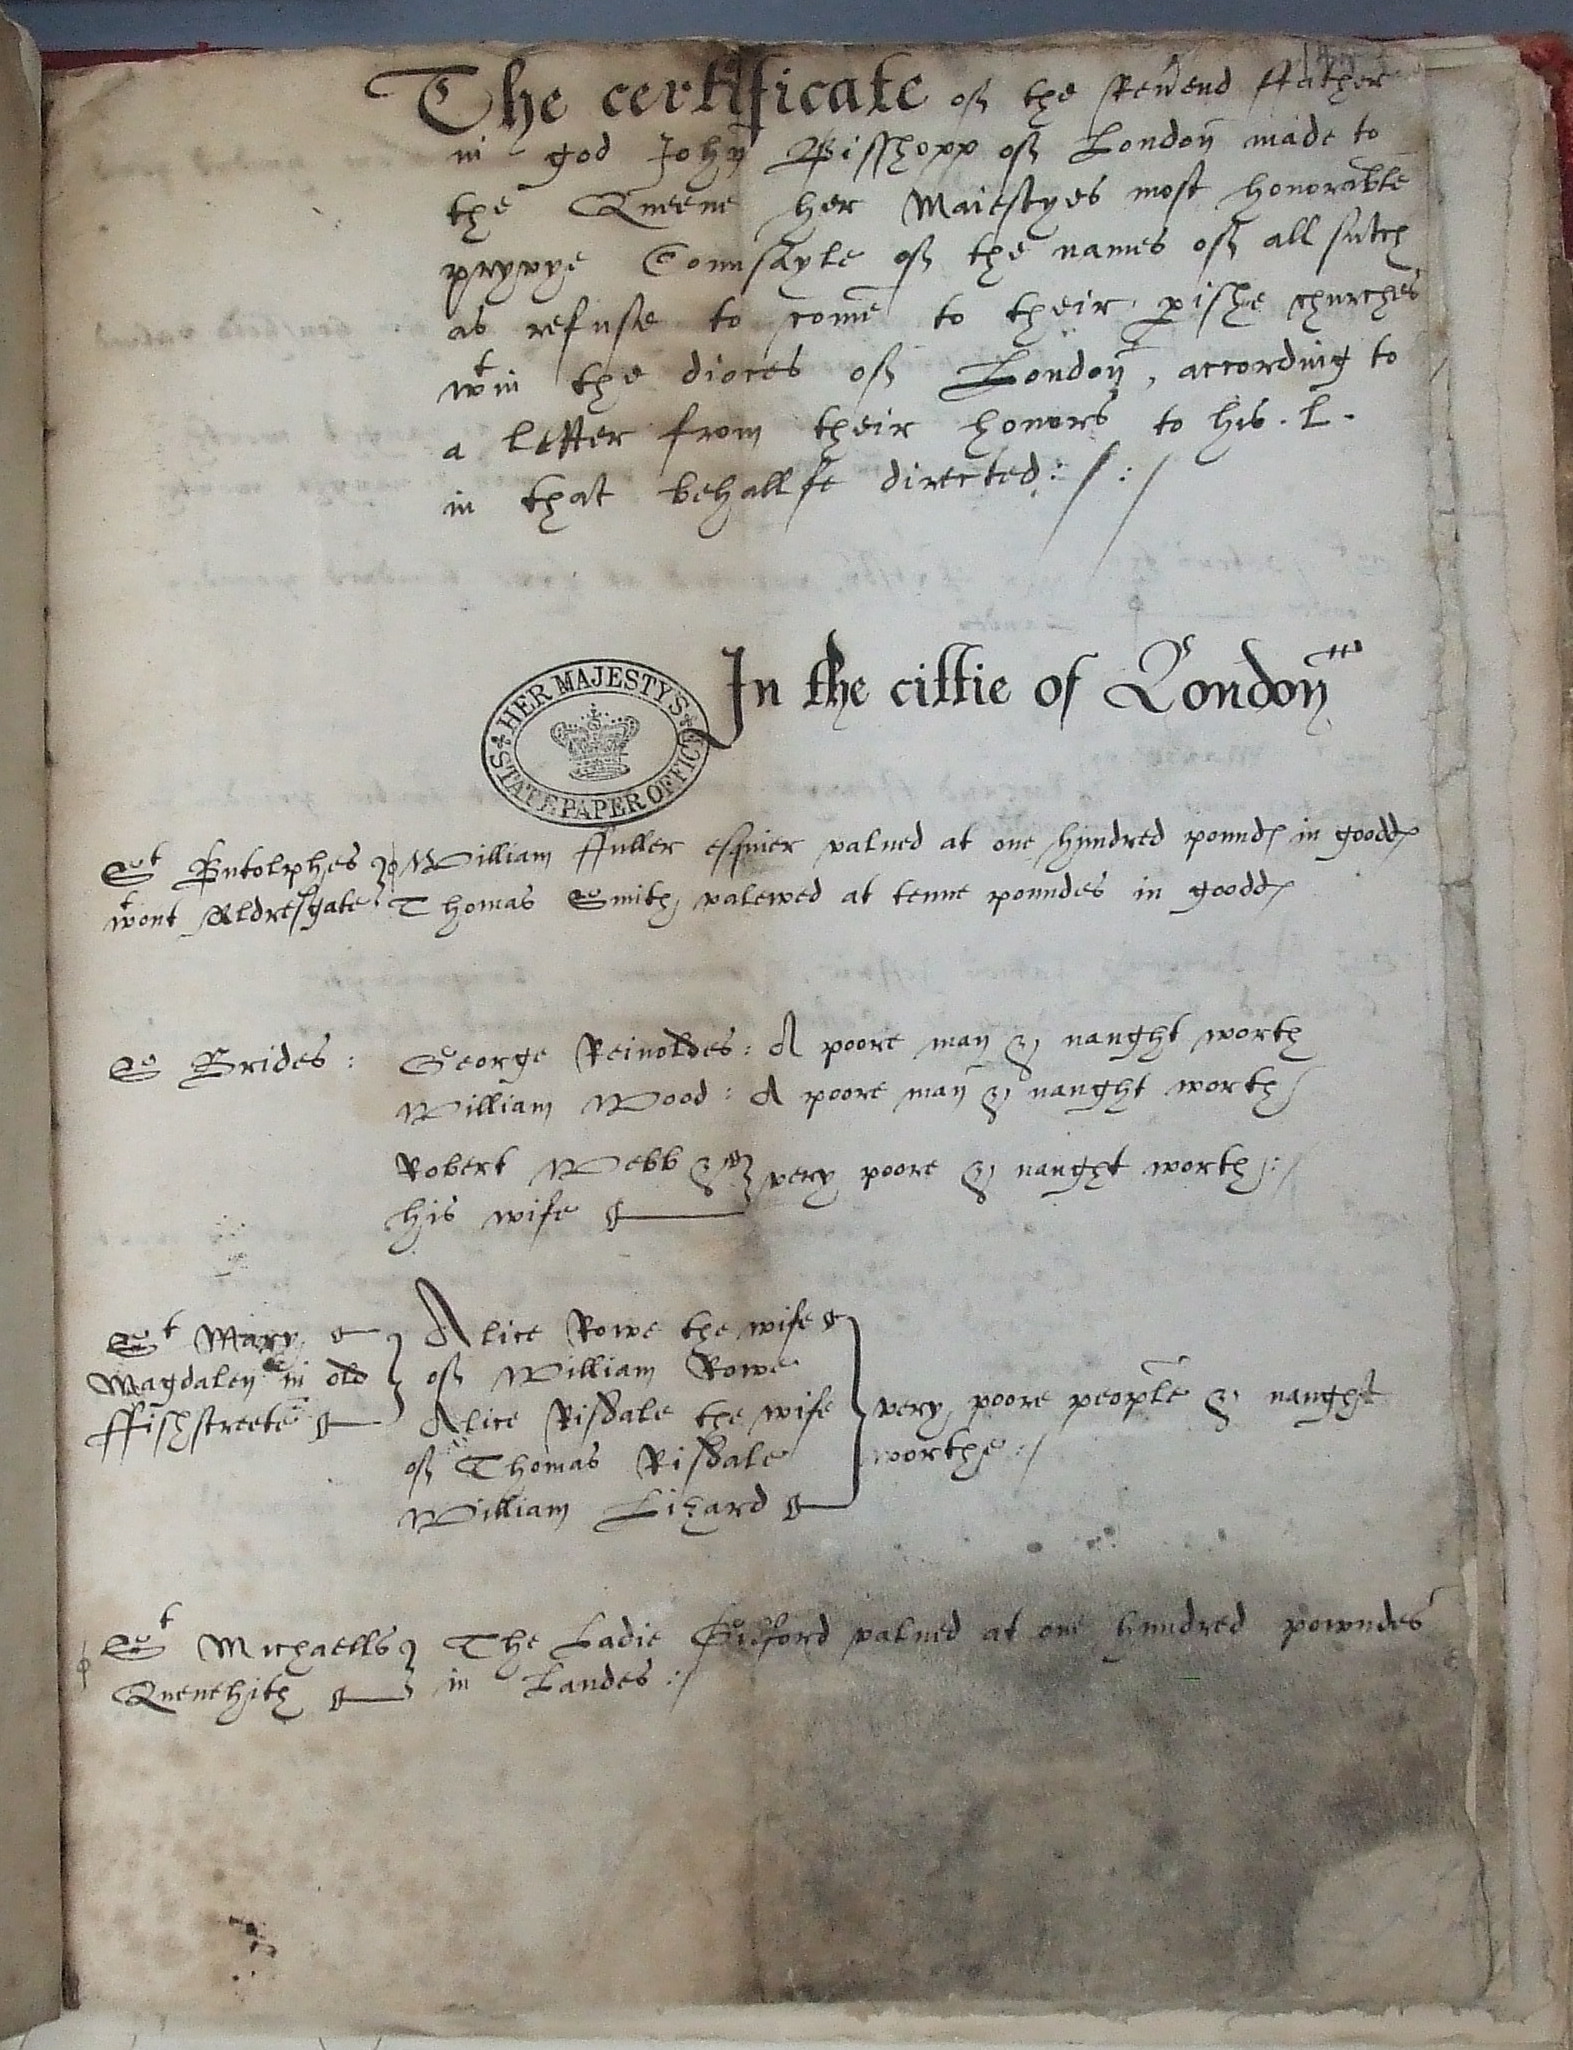 The certificate of the Reu'end ffather
in god John Bisshopp of London made to
the Queene her Maiestyes most honorable
pryvye Counsayle of the names of all sutch
as refuse to come to their p'ishe churches
wt in the dioces of London, according to
a letter from their honors to his . L .
in that behallfe directed : / : /
HER MAJESTY'S
STATE PAPER OFFICE
In the cittie of London
St Butolphes
wt out Aldresgate
William ffuller esquier valued at one hundred pound in goodd
Thomas Smith valewed at tenne poundes in goodd
S Brides :
George Reinoldes : A poore man & naught worth
William Wood : A poore man & naught worth
Robert Webb &
his wife
very poore & naught worth : /
St Mary
Magdalen in old
ffishstreete
Alice Rowe the wife
of William Rowe
Alice Risdale the wife
of Thomas Risdale
William Lizard
very poore people & naught
worthe : /
St Michaells
Quenehith
The Ladie Guiford valued at one hundred powndes
in Landes : /